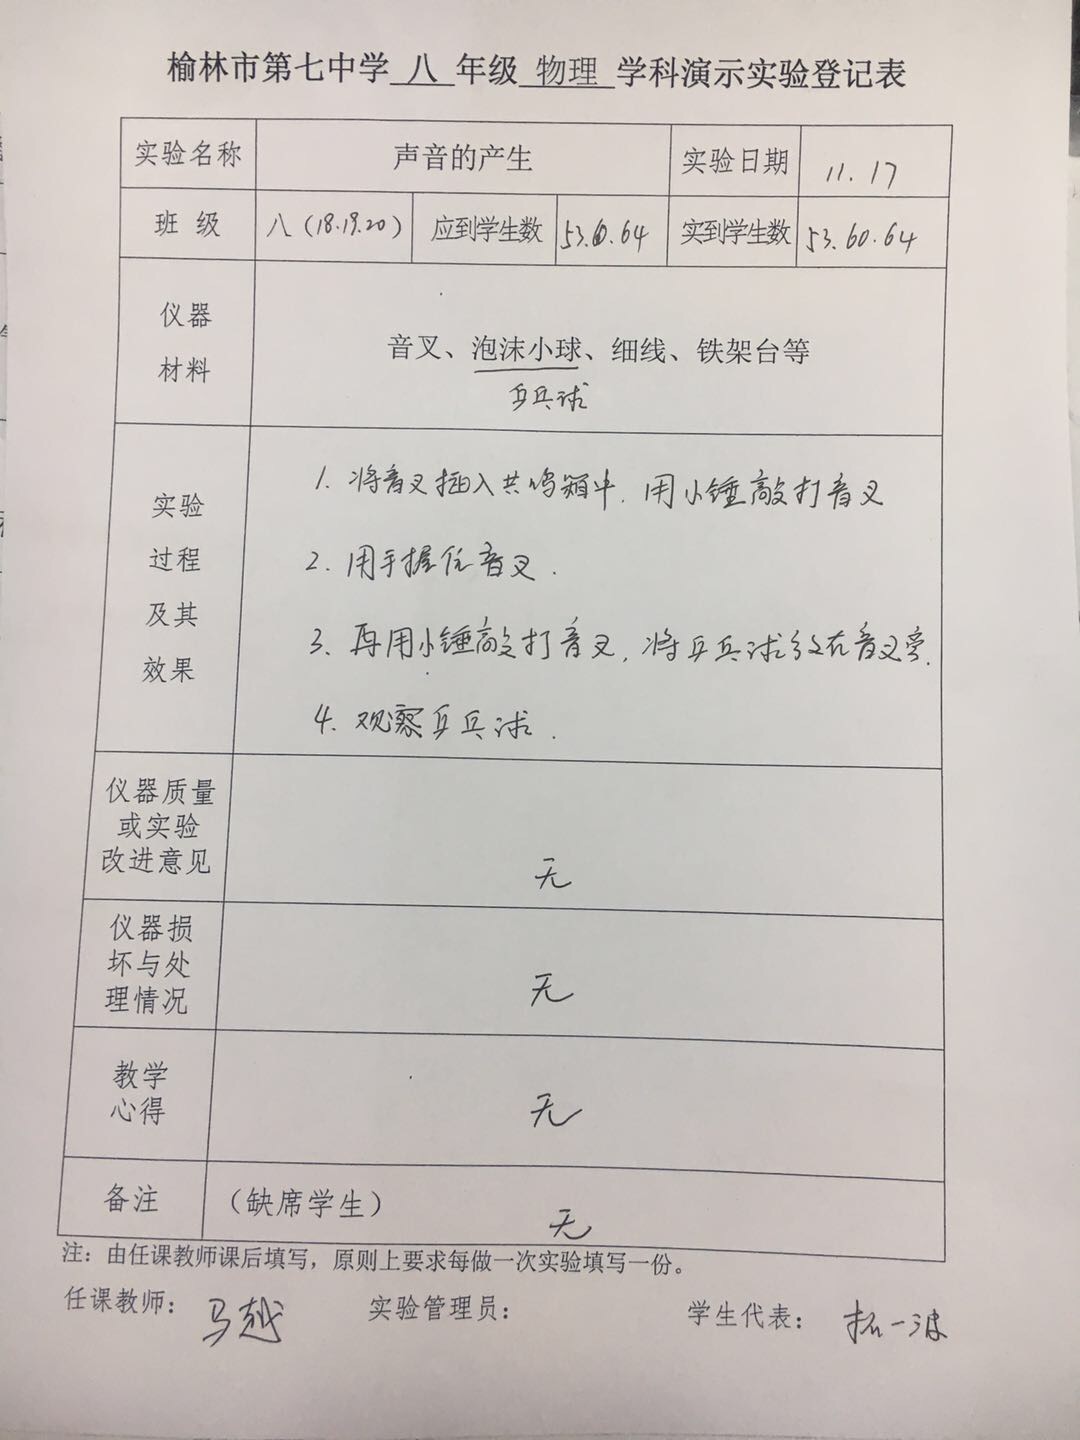 榆林市第七中学 八 年级 物理 学科演示实验登记表
实验名称 声音的产生 实验日期 11.17
班 级 八(18.19.20) 应到学生数 53.60.64 实到学生数 53.60.64
仪器
材料
音叉、泡沫小球、细线、铁架台等
乒乓球
实验
过程
及其
效果
1. 将音叉插入共鸣箱中,用小锤敲打音叉
2. 用手握住音叉.
3. 再用小锤敲打音叉,将乒乓球放在音叉旁.
4. 观察乒乓球.
仪器质量
或实验
改进意见
无
仪器损
坏与处
理情况
无
教学
心得
无
备注 (缺席学生) 无
注:由任课教师课后填写,原则上要求每做一次实验填写一份。
任课教师: 马越 实验管理员: 学生代表: 拓一波